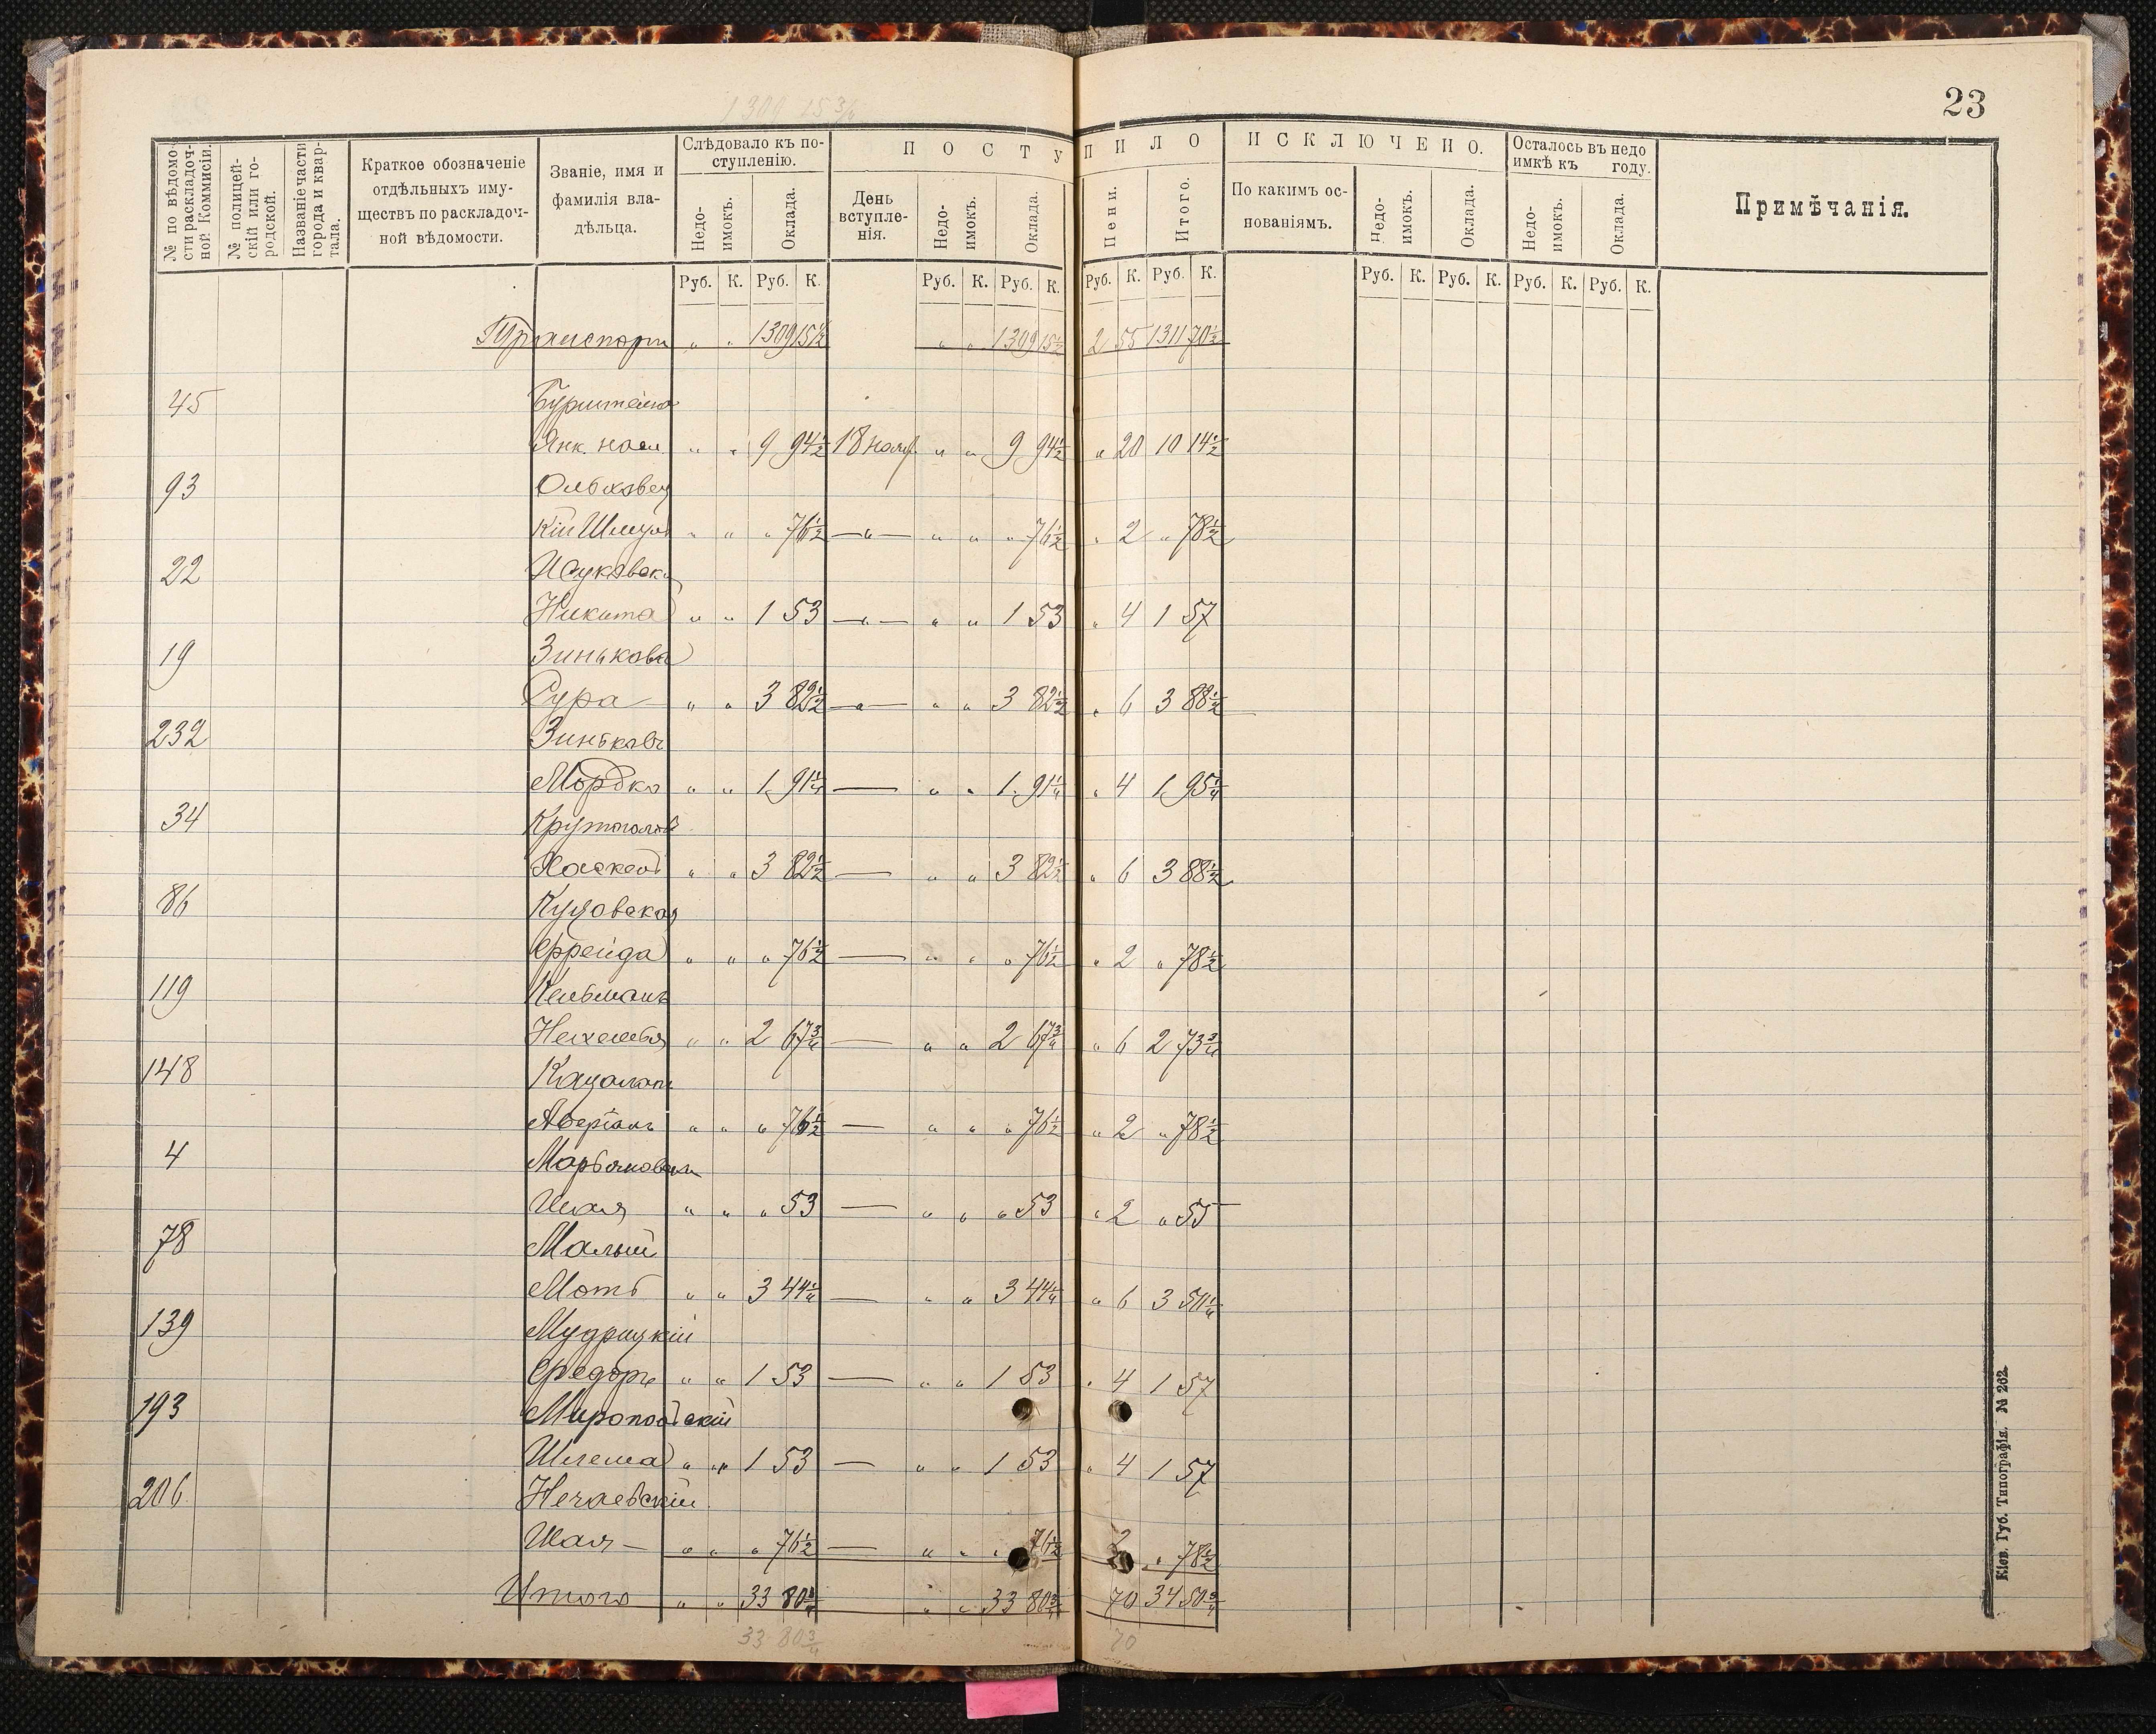 1309 15 3/4
23
№ по вѣдомо-
сти раскладоч-
ной Коммисіи.
№ полицей-
скій или го-
родской.
Названіе части
города и квар-
тала.
Краткое обозначеніе
отдѣльныхъ иму-
ществъ по раскладоч-
ной вѣдомости.
Званіе, имя и
фамилія вла-
дѣльца.
Слѣдовало къ по-
ступленію.
Недо-
имокъ.
Оклада.
ПОСТУПИЛО
День
вступле-
нія.
Недо-
имокъ.
Оклада.
Пени.
Итого.
ИСКЛЮЧЕНО.
По какимъ ос-
нованіямъ.
Недо-
имокъ.
Оклада.
Осталось въ недо
имкѣ къ году.
Недо-
имокъ.
Оклада.
Примѣчанія.
Руб. К. Руб. К. Руб. К. Руб. К. Руб. К. Руб. К. Руб. К. Руб. К. Руб. К. Руб. К.
Транспортъ " " 1309 15½ " " 1309 15½ 2 55 1311 70½
45
" " 9 94½ 18 " " 9 94½ " 20 10 14½
93
Шмуль " " " 76½ —"— " " " 76½ " 2 " 78½
22
Никита " " 1 53 —"— " " 1 53 " 4 1 57
19 Зинькова
Сура " " 3 82½ —"— " " 3 82½ " 6 3 88½
232 Зиньковъ
Мордко " " 1 91¼ — " " 1 91¼ " 4 1 95¼
34
Хаскель " " 3 82½ — " " 3 82½ " 6 3 88½
86
Фрейда " " " 76½ — " " " 76½ " 2 " 78½
119 Кельманъ
" " 2 67¾ — " " 2 67¾ " 6 2 73¾
148
Аверіанъ " " " 76½ — " " " 76½ " 2 " 78½
4
" " " 53 — " " " 53 " 2 " 55
78 Малый
Моть " " 3 44¼ — " " 3 44¼ " 6 3 50¼
139 Мудрицкій
Федоръ " " 1 53 — " " 1 53 " 4 1 57
193 Миропольскій
Шлема " " 1 53 — " " 1 53 " 4 1 57
206 Нечаевскій
Шая — " " " 76½ — " " " 76½ 2 " 78½
Итого " " 33 80¾ " " 33 80¾ 70 34 50¾
33 80¾ 70
Кіев. Губ. Типографія. № 262